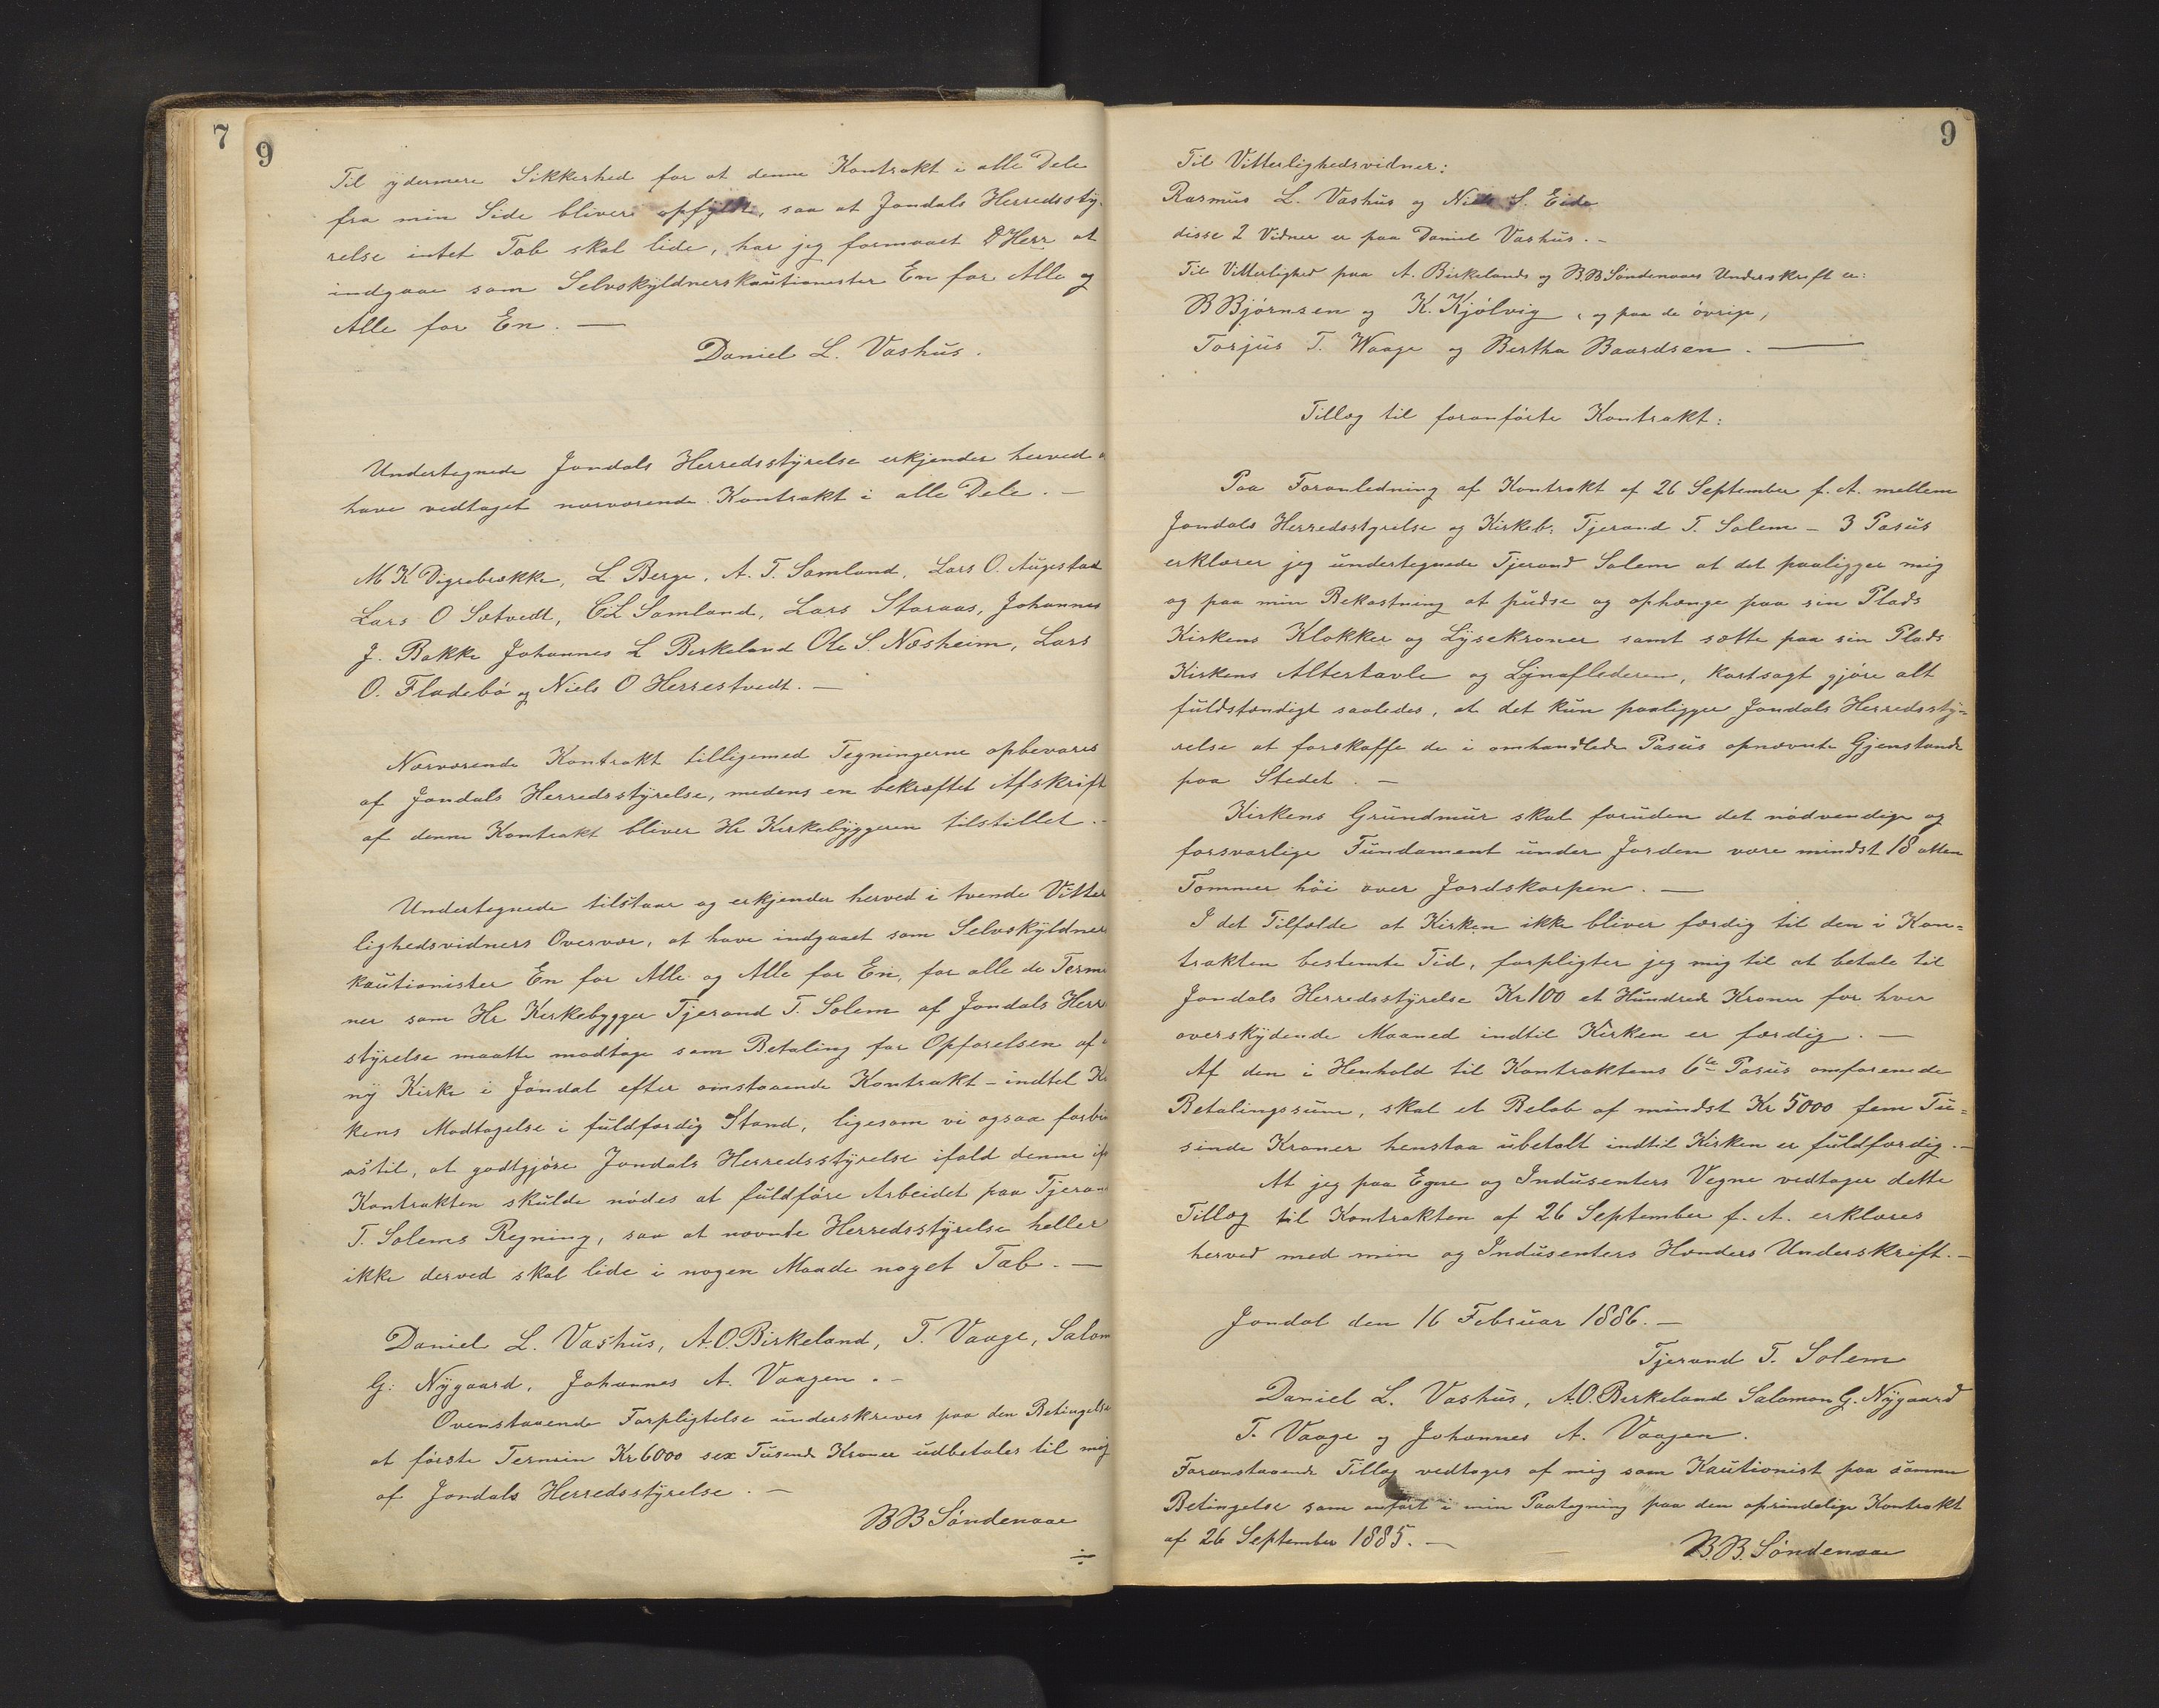 7
9
Til ydermere Sikkerhed for at denne Kontrakt i alle Dele
fra min Side bliver opfyldt, saa at Jondals Herredssty-
relse intet Tab skal lide, har jeg formaaet DHerr at
indgaae som Selvskyldnerskautionister En for Alle og
Alle for En. —
Daniel L. Vashus.
Undertegnede Jondals Herredsstyrelse erkjender herved
have vedtaget nærværende Kontrakt i alle Dele. —
M K Digrebrække, L Berge, A. T. Samland, Lars O. Augestad
Lars O Sætvedt, C L Samland, Lars Staraas, Johannes
J. Bakke Johannes L Birkeland Ole S. Næsheim, Lars
O. Fladebö og Niels O Herrestvedt. —
Nærværende Kontrakt tilligemed Tegningerne opbevares
af Jondals Herredsstyrelse, medens en bekræftet Afskrift
af denne Kontrakt bliver Hr Kirkebyggeren tilstillet. —
Undertegnede tilstaar og erkjender herved i tvende Vitter
lighedsvidners Overvær, at have indgaaet som Selvskyldner
kautionister En for Alle og Alle for En, for alle de Termi
ner som Hr Kirkebygger Tjerand T. Solem af Jondals Herr
styrelse maatte modtage som Betaling for Opførelsen af
ny Kirke i Jondal efter omstaaende Kontrakt – indtil Ki
kens Modtagelse i fuldfærdig Stand, ligesom vi ogsaa forbi
os til, at godtgjøre Jondals Herredsstyrelse ifald denne if
Kontrakten skulde nödes at fuldföre Arbeidet paa Tjeran
T. Solems Regning, saa at nævnte Herredsstyrelse heller
ikke derved skal lide i nogen Maade noget Tab. —
Daniel L. Vashus, A.O. Birkeland, T. Vaage, Salom
G. Nygaard, Johannes A. Vaagen. —
Ovenstaaende Forpligtelse underskrives paa den Betingelse
at förste Termin Kr 6000 sex Tusende Kroner udbetales til mig
af Jondals Herredsstyrelse. —
B B Söndenaae
9
Til Vitterlighedsvidner:
Rasmus L. Vashus og Niels S. Eide
disse 2 Vidner er paa Daniel Vashus. —
Til Vitterlighed paa A. Birkelands og B.B Söndenaaes Underskrift er:
B Bjórnsen og K. Kjólvig, og paa de óvrige,
Torjus T. Waage og Bertha Baardsen. —
Tillæg til foranförte Kontrakt:
Paa Foranledning af Kontrakt af 26 September f. A. mellem
Jondals Herredsstyrelse og Kirkeb: Tjerand T. Solem – 3 Pasus
erklærer jeg undertegnede Tjerand Solem at det paaligger mig
og paa min Bekostning at pudse og ophænge paa sin Plads
Kirkens Klokker og Lysekroner samt sætte paa sin Plads
Kirkens Altertavle og Lynaflederen, kortsagt gjöre alt
fuldstændigt saaledes, at det kun paaligger Jondals Herredssty=
relse at forskaffe de i omhandlede Pasus opnævnte Gjenstande
paa Stedet. —
Kirkens Grundmur skal foruden det nödvendige og
forsvarlige Fundament under Jorden være mindst 18 atten
Tommer höi over Jordskorpen. —
I det Tilfælde at Kirken ikke bliver færdig til den i Kon=
trakten bestemte Tid, forpligter jeg mig til at betale til
Jondals Herredsstyrelse Kr 100 et Hundrede Kroner for hver
overskydende Maaned indtil Kirken er færdig. —
Af den i Henhold til Kontraktens 6te Pasus omforenede
Betalingssum, skal et Beløb af mindst Kr 5000 fem Tu=
sinde Kroner henstaa ubetalt indtil Kirken er fuldfærdig. —
At jeg paa Egne og Indusenters Vegne vedtager dette
Tillæg til Kontrakten af 26 September f. A. erklæres
herved med min og Indusenters Hænders Underskrift. —
Jondal den 16 Februar 1886. —
Tjerand T. Solem
Daniel L. Vashus, A.O. Birkeland Salomon G. Nygaard
T. Vaage og Johannes A. Vaagen.
Foranstaaende Tillæg vedtages af mig som Kautionist paa samme
Betingelse som anført i min Paategning paa den oprindelige Kontrakt
af 26 September 1885. —
B.B. Söndenaae